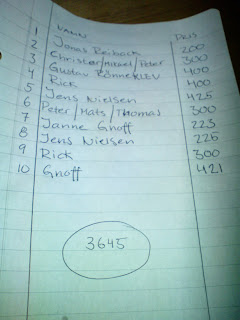 NAMN PRIS
1 Jonas 200
2 Christer/Mikael/Peter 300
3 Gustav Rönneklev 400
4 Rick 400
5 Jens Nielsen 425
6 Peter/Mats/Thomas 300
7 Janne Gnoff 223
8 Jens Nielsen 226
9 Rick 300
10 Gnoff 421
3645